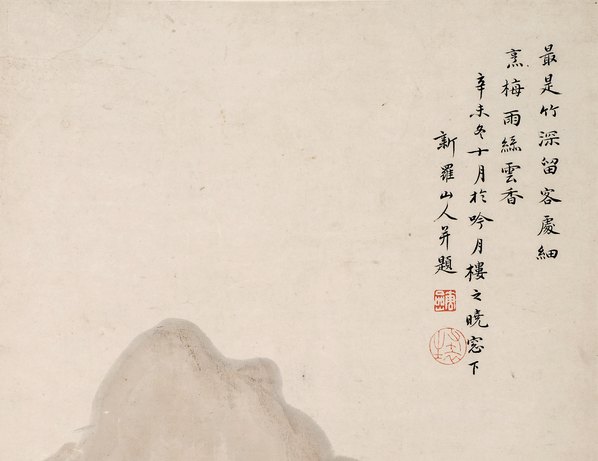 最是竹深留客處細
烹梅雨綠雲香
辛未冬十月於吟月樓之曉窓下
新羅山人并題